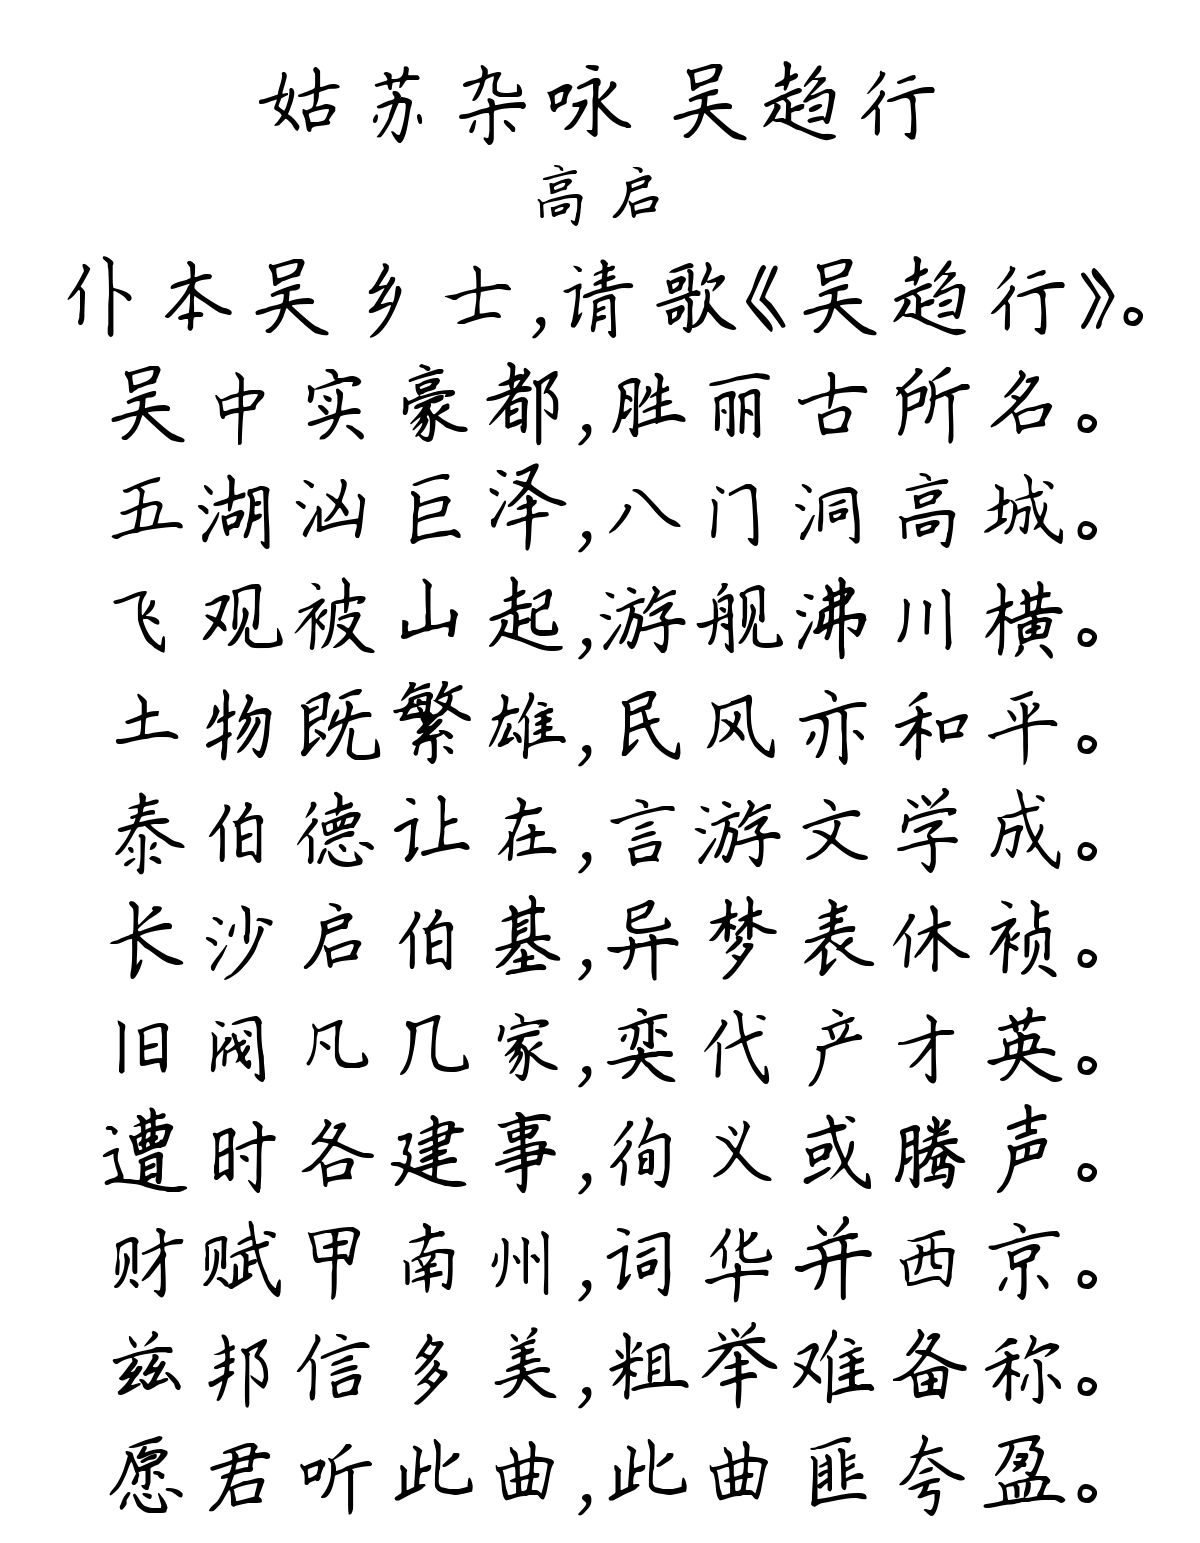 姑苏杂咏 吴趋行
高启
仆本吴乡士,请歌《吴趋行》。
吴中实豪都,胜丽古所名。
五湖汹巨泽,八门洞高城。
飞观被山起,游舰沸川横。
土物既繁雄,民风亦和平。
泰伯德让在,言游文学成。
长沙启伯基,异梦表休祯。
旧阀凡几家,奕代产才英。
遭时各建事,徇义或腾声。
财赋甲南州,词华并西京。
兹邦信多美,粗举难备称。
愿君听此曲,此曲匪夸盈。